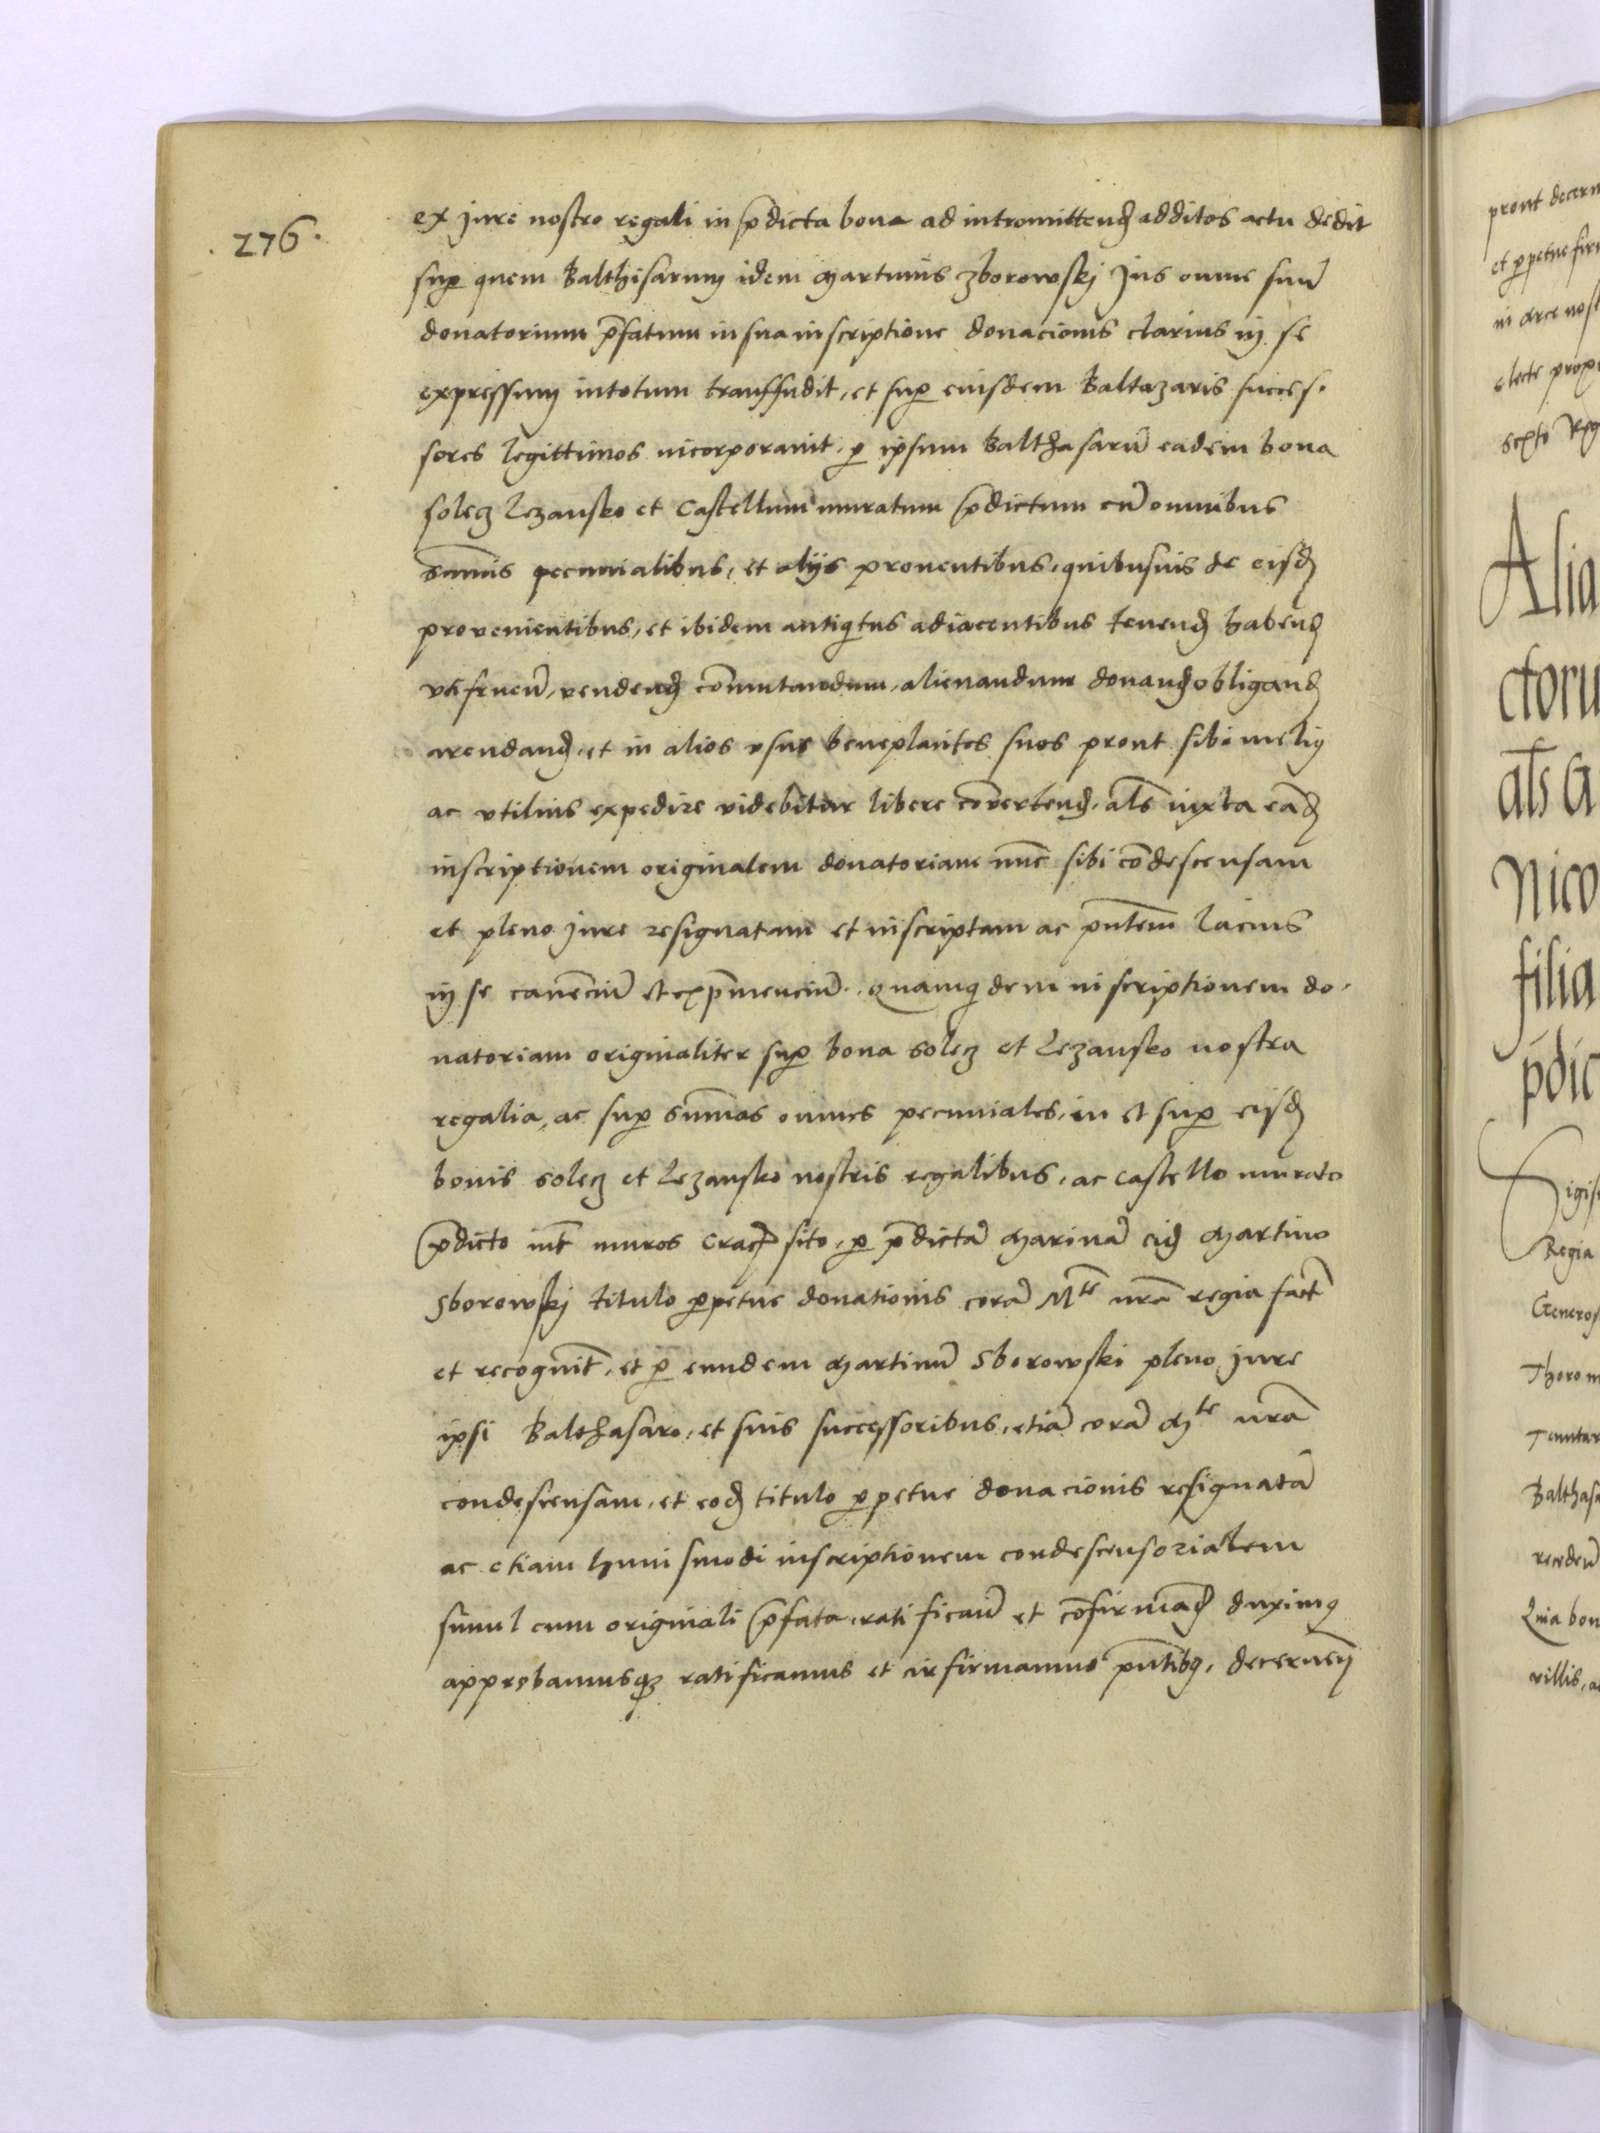 . 276 .
ex jure nostro regali in p̄dicta bona ad intromittend̄ additos actu dedit
sup̄ quem Balthisarum idem Martinus Zborowskj Jus omne suū
donatorium p̄fatum in sua inscriptione donacionis clarius in se
expressum in totum transfudit, et sup̄ eiusdem Baltazaris succes-
sores legittimos incorporauit, p̄ ipsum Balthasarū eadem bona
solecz Lezansko et Castellum muratum p̄dictum cū omnibus
sum̄is pecunialibus, et alijs prouentibus, quibusuis de eisd̄
prouenientibus, et ibidem antiqtus adiacentibus tenend̄ habend̄
vtifruen̄, vendend̄ com̄utandum, alienandum donand̄ obligand̄
arendand̄, et in alios vsus beneplacitos suos prout sibi melig
ac vtilius expedire videbitur libere cōuertend̄, als̄ iuxta eād̄
inscriptionem originalem donatoriam nūc sibi cōdescensam
et pleno jure resignatam et inscriptam ac pn̄tem lacius
in se canēciū et exp̄menciū. Quamqdem inscriptionem do-
natoriam originaliter sup̄ bona solecz et Lezansko nostra
regalia, ac sup̄ sum̄as omnes pecuniales, in et sup̄ eisd̄
bonis solecz et Lezansko nostris regalibus, ac castello murato
p̄dicto int̄ muros Crac̄ sito, p̄ p̄dictā Marinā eid̄ Martino
Sborowskj titulo p̄petue donationis corā Mte nrā regia fact̄
et recognit̄, et p̄ eundem Martinū Sborowski pleno jure
ipsi Balthasaro, et suis successoribus, etiā corā Mte nrā
condescensam, et eod̄ titulo p̄petue donacionis resignatā
ac etiam huiusmodi inscriptionem condescensorialem
simul cum originali p̄fata, ratifican̄ et cōfirmād̄ duximq
approbamusqz ratificamus et cōfirmamus pn̄tibq, decernen̄
prout decern
et p̄petue fir
in arce nost
electe prox
sexto Reg
Alia
ctoru
als̄ G
Nico
filia
p̄dic
Sigis
Regia
Generos
Thorom
Tenutar
Balthasa
receden̄
Quia bon
villis, a